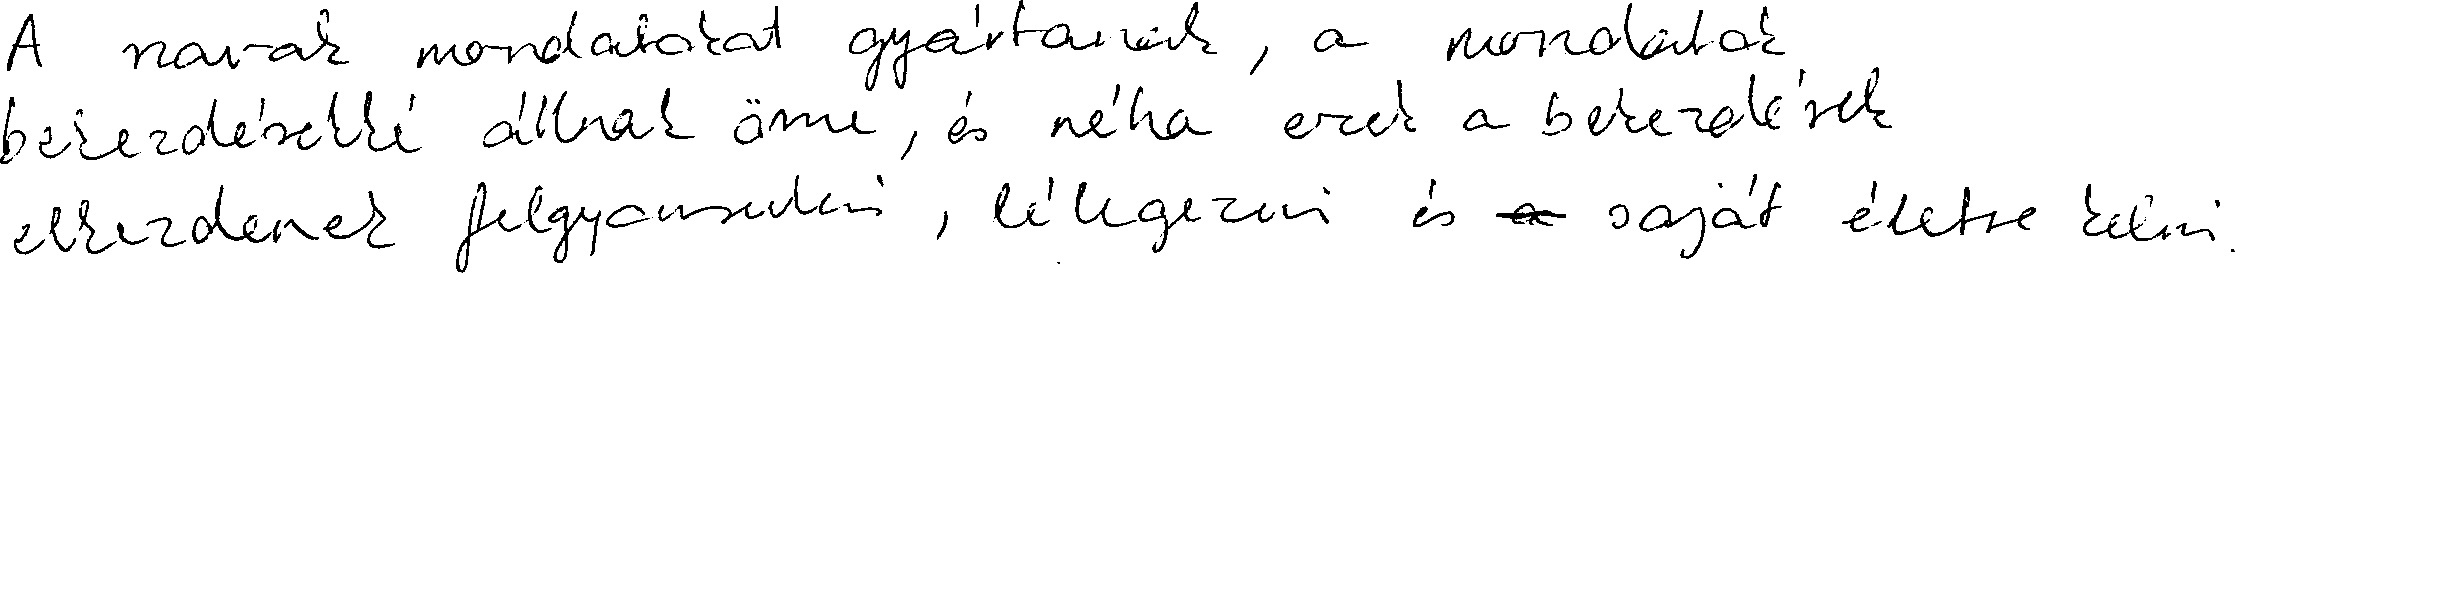 A szavak mondatokat gyártanak, a mondatok
bekezdésekké állnak össze, és néha ezek a bekezdések
elkezdenek felgyorsulni, lélegezni és saját életre kelni.